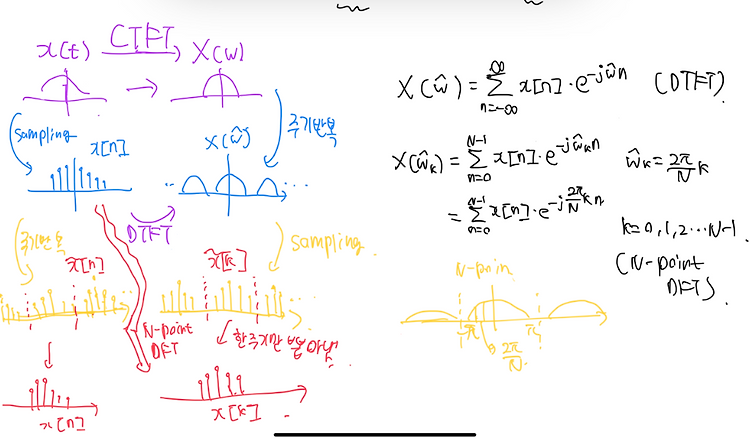 x(t) CTFT X(w)
sampling
x[n]
X(ŵ)
주기반복
DTFT
주기반복
x̃[n]
sampling
x̃[k]
N-point
DFT
한주기만 뽑아냄
x[n]
x[k]
X(ŵ) = ∑_{n=-∞}^{∞} x[n]·e^{-jŵn} (DTFT).
X(ŵ_k) = ∑_{n=0}^{N-1} x[n]·e^{-jŵ_k n} ŵ_k = 2π/N k
= ∑_{n=0}^{N-1} x[n]·e^{-j 2π/N k n} k=0,1,2...N-1
(N-point
DFT).
N-poin
-π π
2π/N